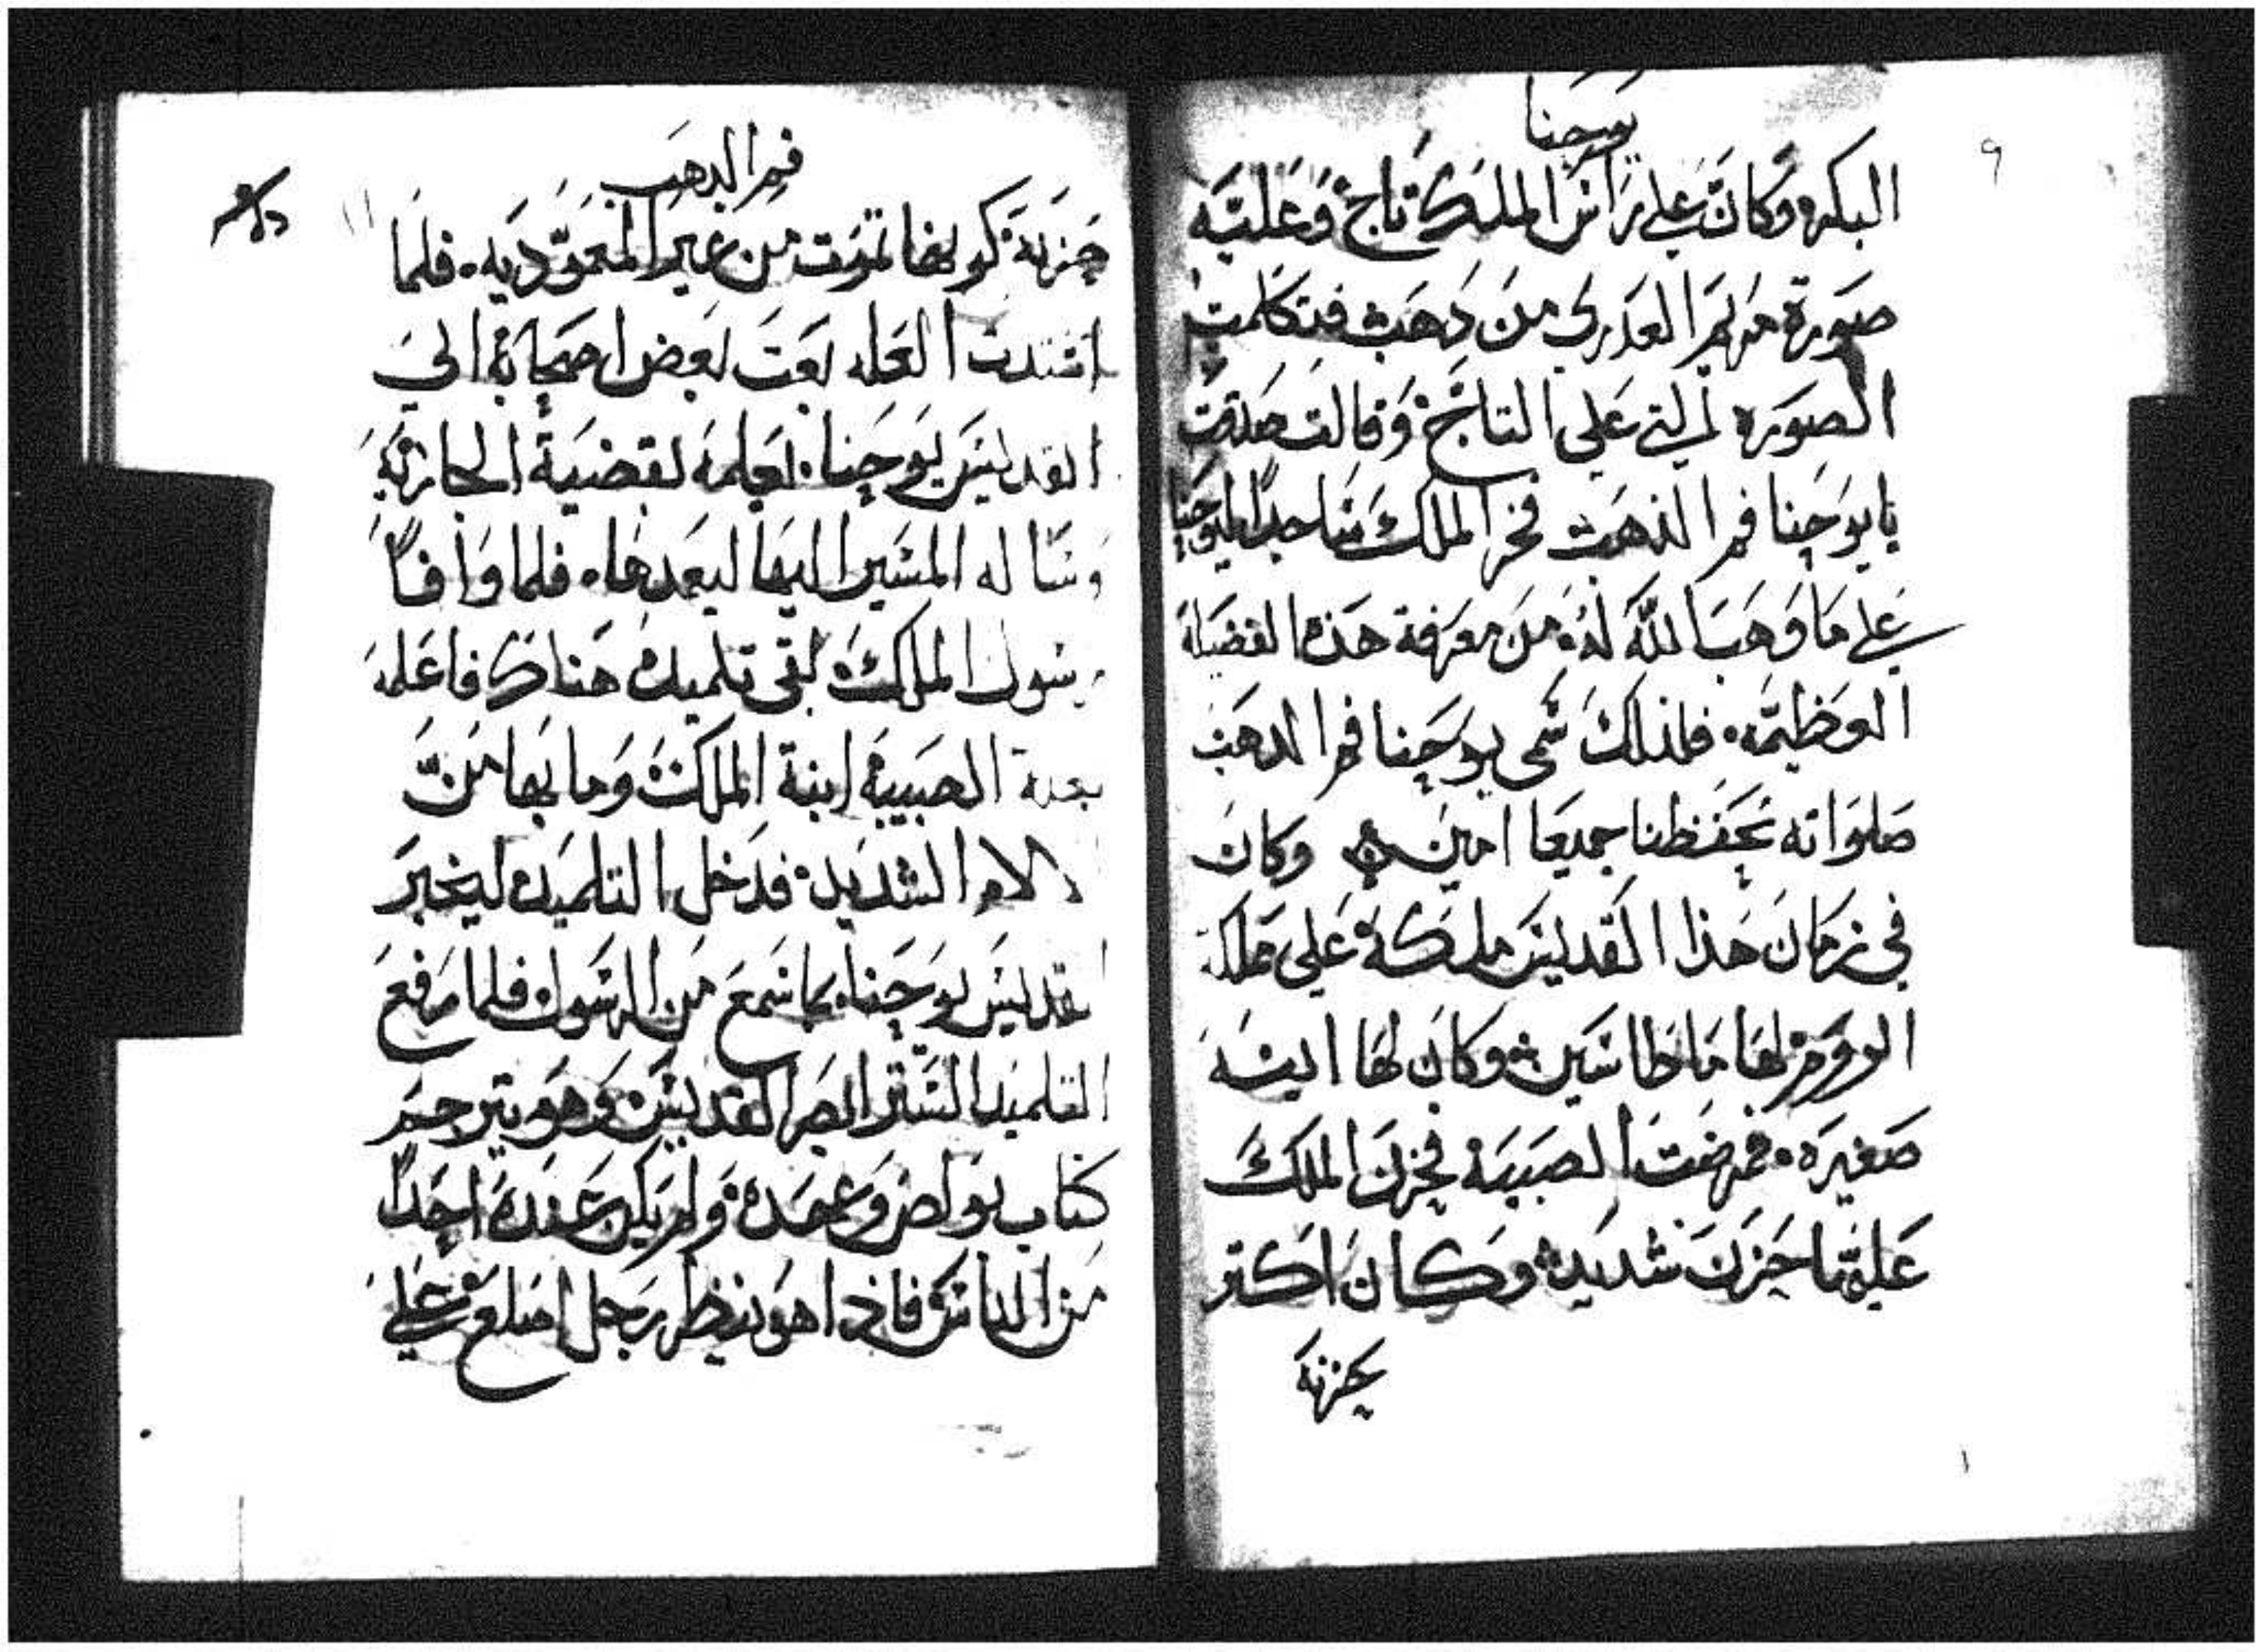 يوحنا
٩
البكر وكان على راس الملك تاج وعليه
صورة مريم العدرى من دهب فتكلمت
الصوره التي على التاج وقالت صدقت
يا يوحنا فم الذهب فخر الملك ساجدا ليوحنا
على ما وهب الله له من معرفة هذه الفضيلة
العظيمه فلذلك سمى يوحنا فم الدهب
صلواته تحفظنا جميعا امين وكان
في زمان هذا القديس ملكه على مملكة
الروم وكان لها ابنه
صغيره فمرضت الصبيه فحزن الملك
عليها حزن شديد وكان اكتر
يحزنه
فم الدهب
١١
حزنه كونها تموت من غير المعموديه فلما
اشتدت العله بعت بعض اصحابه الي
القديس يوحنا يعلمه بقضية الجاريه
وساله المسير اليها ليعمدها فلما وافا
رسول الملك لقى تلميده هناك فاعلمه
الصبيه ابنة الملك وما بها من
الالام الشديده فدخل التلميد ليخبر
القديس يوحنا بما سمع من الرسول فلما رفع
التلميد الستر ابصر القديس وهو يترجم
كتاب بولص وعمده ولم يكن عنده احدا
من الناس فاذا هو ينظر رجل اصلع على